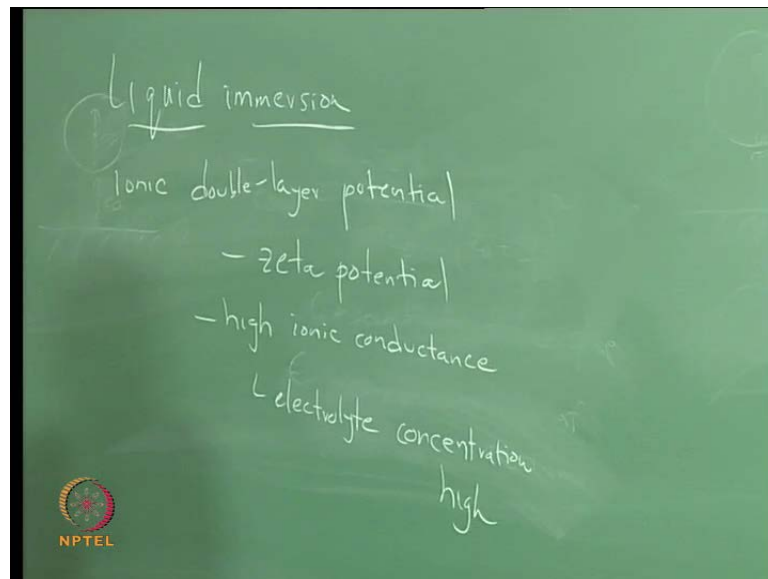 Liquid immersion
Ionic double-layer potential
- zeta potential
- high ionic conductance
└ electrolyte concentration
high
NPTEL